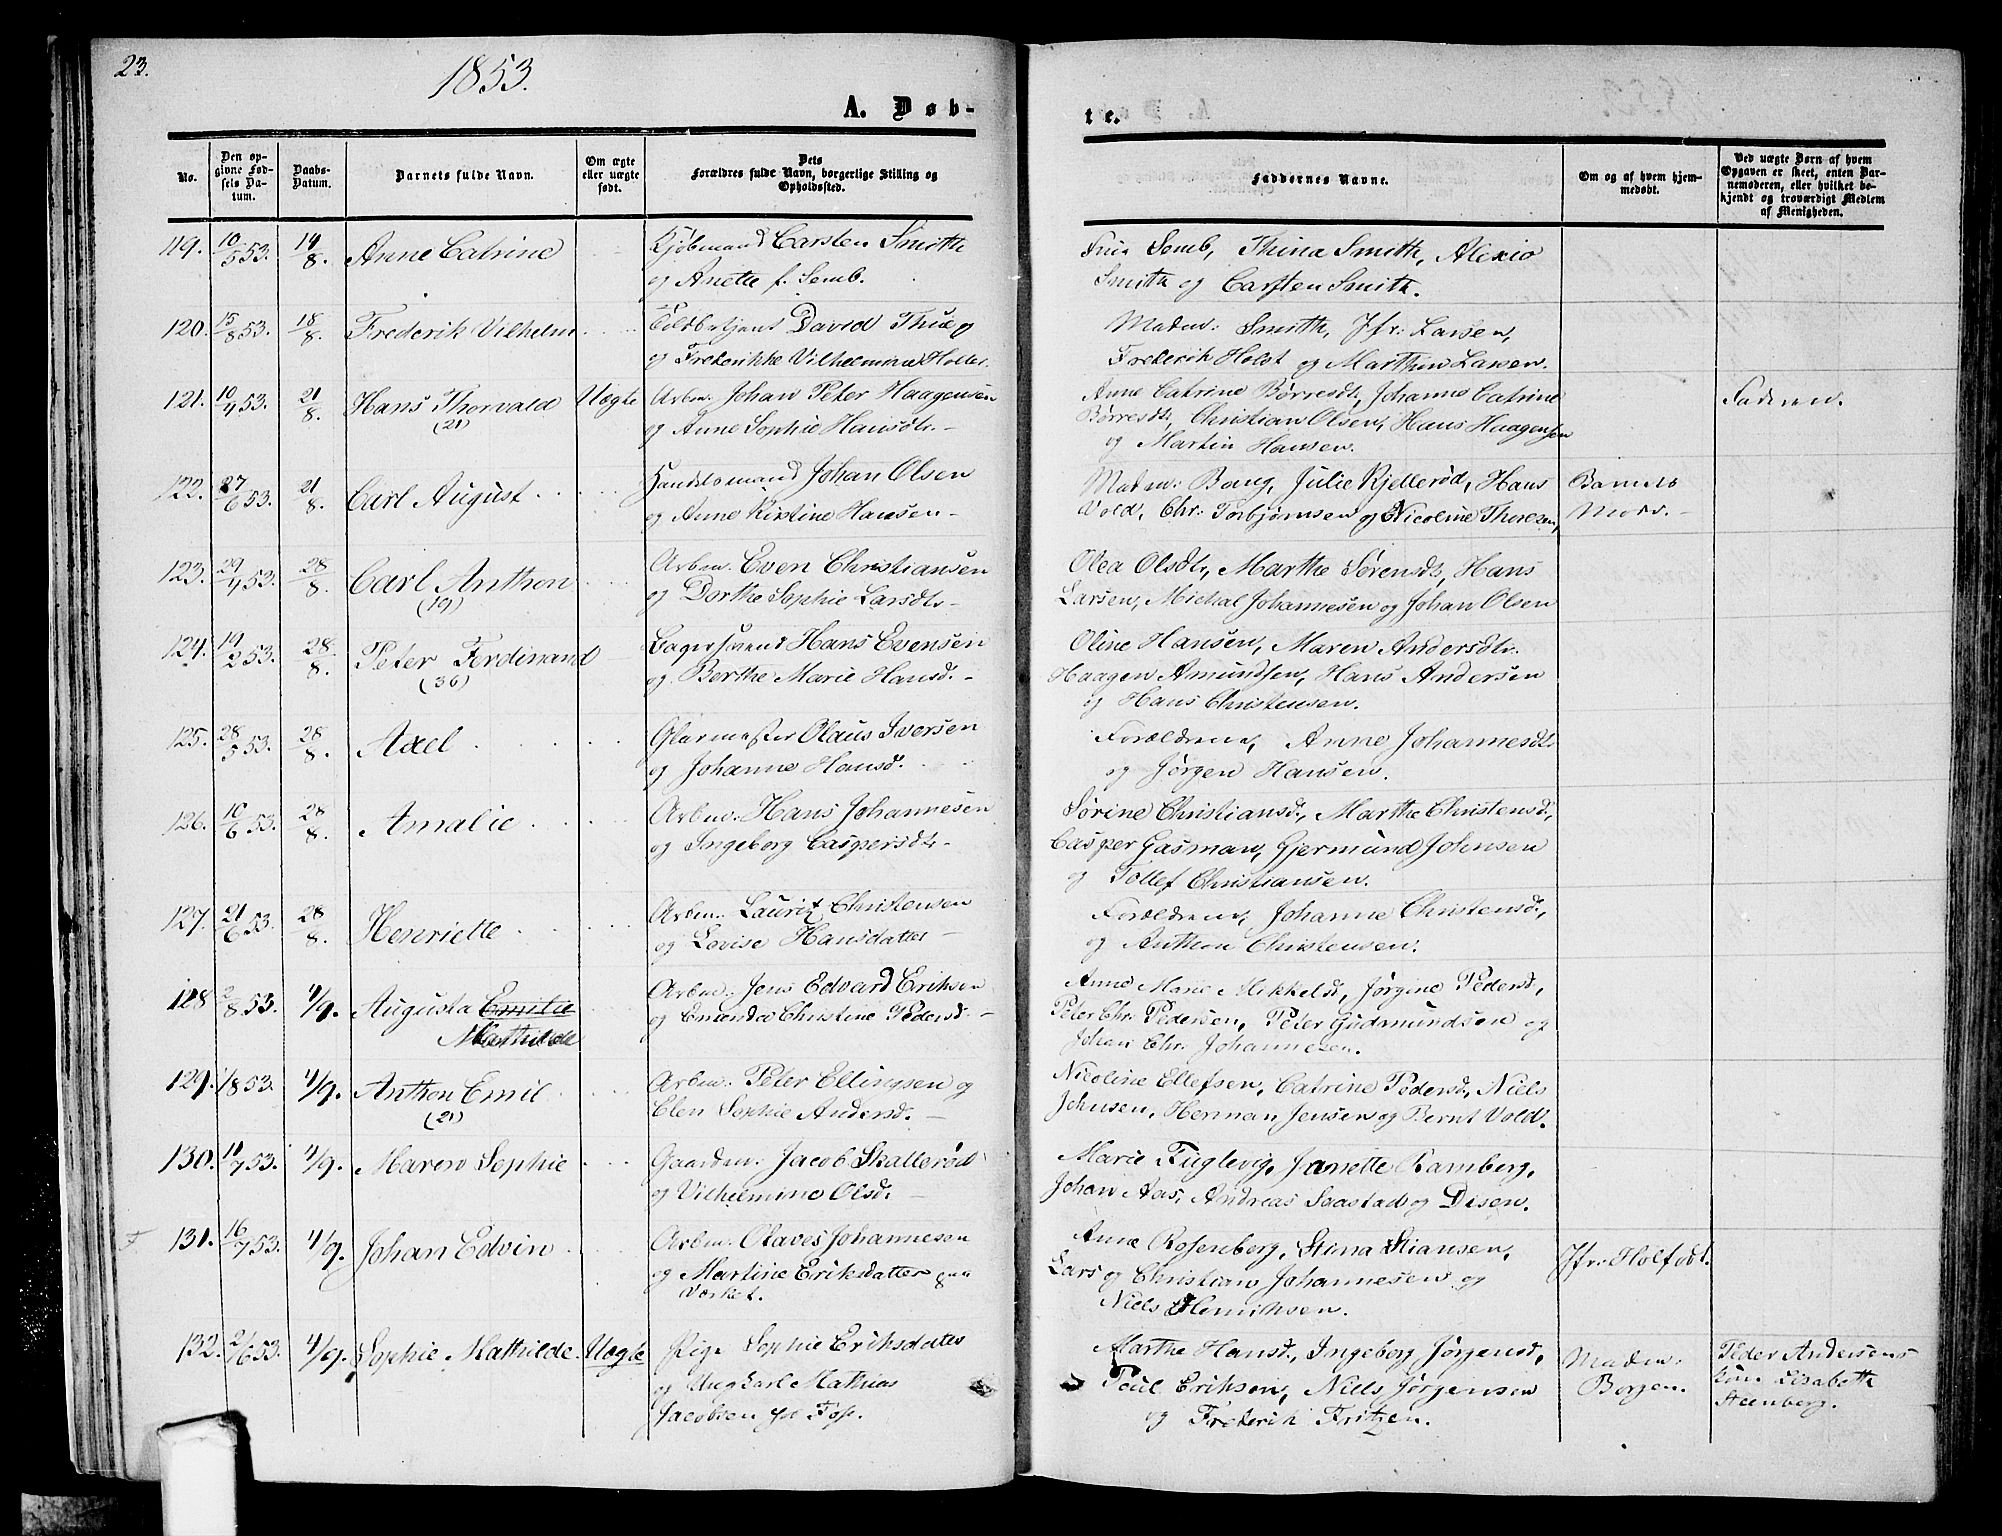 23.
1853.
A. Døb-
te.
No.
Den op-
givne Fød-
sels Da-
tum.
Daabs-
Datum.
Barnets fulde Navn.
Om ægte
eller uægte
født.
Dets
Forældres fulde Navn, borgerlige Stilling og
Opholdssted.
Faddernes Navne.
Om og af hvem hjem-
medøbt.
Ved uægte Børn af hvem
Opgaven er skeet, enten Bar-
nemoderen, eller hvilket be-
kjendt og troværdigt Medlem
af Menigheden.
119. 10/5 53. 14/8. Anne Catrine
Kjøbmand Carsten Smith
og Anette f. Semb.
Semb, Thina Smith, Alexio
Smith og Carsten Smith.
120. 15/8 53. 18/8. Frederik Vilhelm
Toldbetjent David Thue
og Frederikke Vilhelmine Holter.
Madm: Smith, Jfr: Larsen,
Frederik Holst og Marthin Larsen.
121. 10/4 53. 21/8. Hans Thorvald Uægte
(21)
Arbm. Johan Peter Haagensen
og Anne Sophie Hansdtr.
Anne Catrine Børresdt, Johanne Catrine
Børresdt, Christian Olsen, Hans Haagensen
og Martin Hansen.
Faderen.
122. 27/6 53. 21/8. Carl August
Handelsmand Johan Olsen
og Anne Kirstine Hansen
Madm: Bang, Julie Kjellerød, Hans
Vold, Chr. Torbjørnsen og Nicoline Thoresen,
Barnets
Moder.
123. 29/4 53. 28/8. Carl Anthon
(19)
Arbm. Even Christiansen
og Dorthe Sophie Larsdtr.
Olea Olsdtr, Marthe Sørensdt, Hans
Larsen, Michal Johannesen og Johan Olsen
124. 19/2 53. 28/8. Peter Ferdinand
(36)
Bagersvend Hans Evensen
og Berthe Marie Hansd.
Oline Hansen, Maren Andersdtr.
Haagen Amundsen, Hans Andersen
og Hans Christensen.
125. 28/5 53. 28/8. Axel
Glarmester Olaus Iversen
og Johanne Hansd.
Forældrene, Anne Johannesdt
og Jørgen Hansen.
126. 10/6 53. 28/8. Amalie
Arbm: Hans Johannesen
og Ingeborg Caspersdtr.
Sørine Christiansd., Marthe Christensd.,
Casper Gasman, Gjermund Johnsen
og Tollef Christiansen.
127. 21/6 53. 28/8. Henriette
Arbm: Lauritz Christensen
og Lovise Hansdatter
Forældrene, Johanne Christensd.,
og Anthon Christensen.
128 2/8 53. 4/9. Augusta Emilie
Mathilde
Arbm: Jens Edvard Eriksen
og Emerdæ Christine Pedersd.
Anne Marie Mikkelsd, Jørgine Pedersd,
Peter Chr. Pedersen, Peter Gudmundsen og
Johan Chr. Johannesen.
129. 1/8 53. 4/9. Anthon Emil
(21)
Arbm: Peter Ellingsen og
Elen Sophie Andersd.
Nicoline Ellefsen, Catrine Pedersd, Niels
Johnsen, Herman Jensen og Bernt Vold.
130. 11/7 53. 4/9. Maren Sophie
Gaardm: Jacob Skallerød
og Vilhelmine Olsd.
Marie Fuglevig, Janette Ramberg,
Johan Aas, Andreas Saastad og Disen.
131. 16/7 53. 4/9. Johan Edvin
Arbm: Olaves Johannesen
og Martine Eriksdatter paa
Værket.
Anne Rosenberg, Stina Stiansen,
Lars og Christian Johannesen og
Niels Henriksen.
Jfr: Holfodt.
132. 2/6 53. 4/9. Sophie Mathilde. Uægte
Pige Sophie Eriksdatter
og Ungkarl Mathias
Jacobsen
Marthe Hansd., Ingeborg Jørgensd,
Poul Eriksen, Niels Jørgensen
og Frederik Fritzen.
Madm:
Borgen.
Peder Andersens
kone Lisabeth
Steenberg.